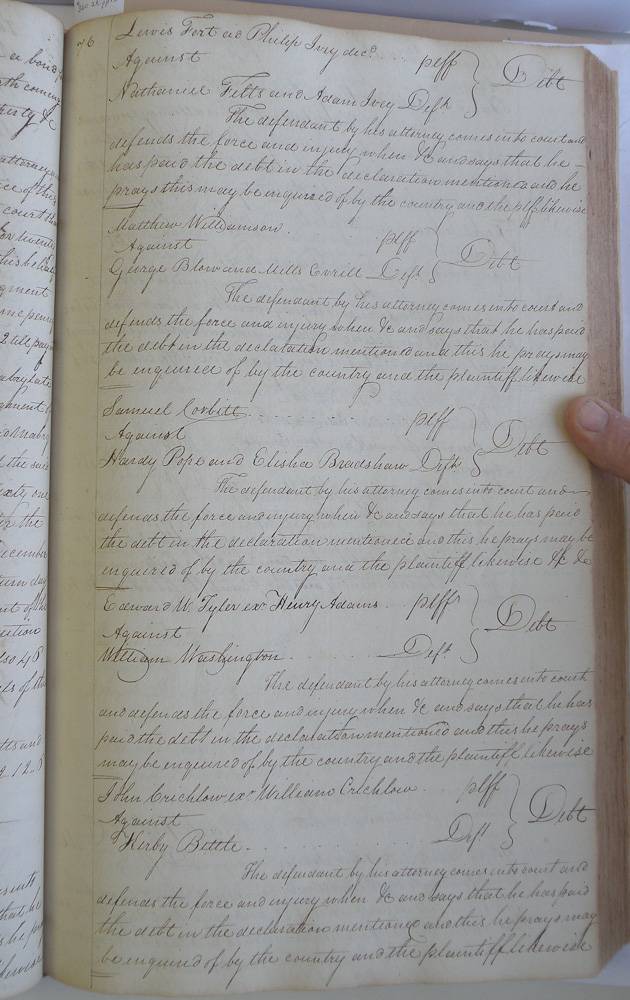 76
Lewis Fort ad Philip Ivey decd. .... plff
Against } Debt
Nathaniel Felts and Adam Ivey Defts
The defendant by his attorney comes into court and
defends the force and injury when &c and says that he
has paid the debt in the declaration mentioned and he
prays this may be enquired of by the country and the plff likewise
Matthew Williamson . .. plff
Against } Debt
George Blow and Mills Defts
The defendant by his attorney comes into court and
defends the force and injury when &c and says that he has paid
the debt in the declatation mentioned and this he prays may
be enquired of by the country and the plaintiff likewise
Samuel Corbitt .......... plff
Against } Debt
Hardy Pope and Elisha Bradshaw Defts
The defendant by his attorney comes into court and
defends the force and injury when &c and says that he has paid
the debt in the declaration mentioned and this he prays may be
enquired of by the country and the plaintiff likewise &c &c
Edward W. Tyler exr Henry Adams .. plff
Against } Debt
William Washington . .... Deft.
The defendant by his attorney comes into court
and defends the force and injury when &c and says that he has
paid the debt in the declatation mentioned and this he prays
may be enquired of by the country and the plaintiff likewise
John Crichlow exr William Crichlow . plff
Against } Debt
Kerby Bittle . ....... Deft
The defendant by his attorney comes into court and
defends the force and injury when &c and says that he has paid
the debt in the declaration mentioned and this he prays may
be enquired of by the country and the plaintiff likewise